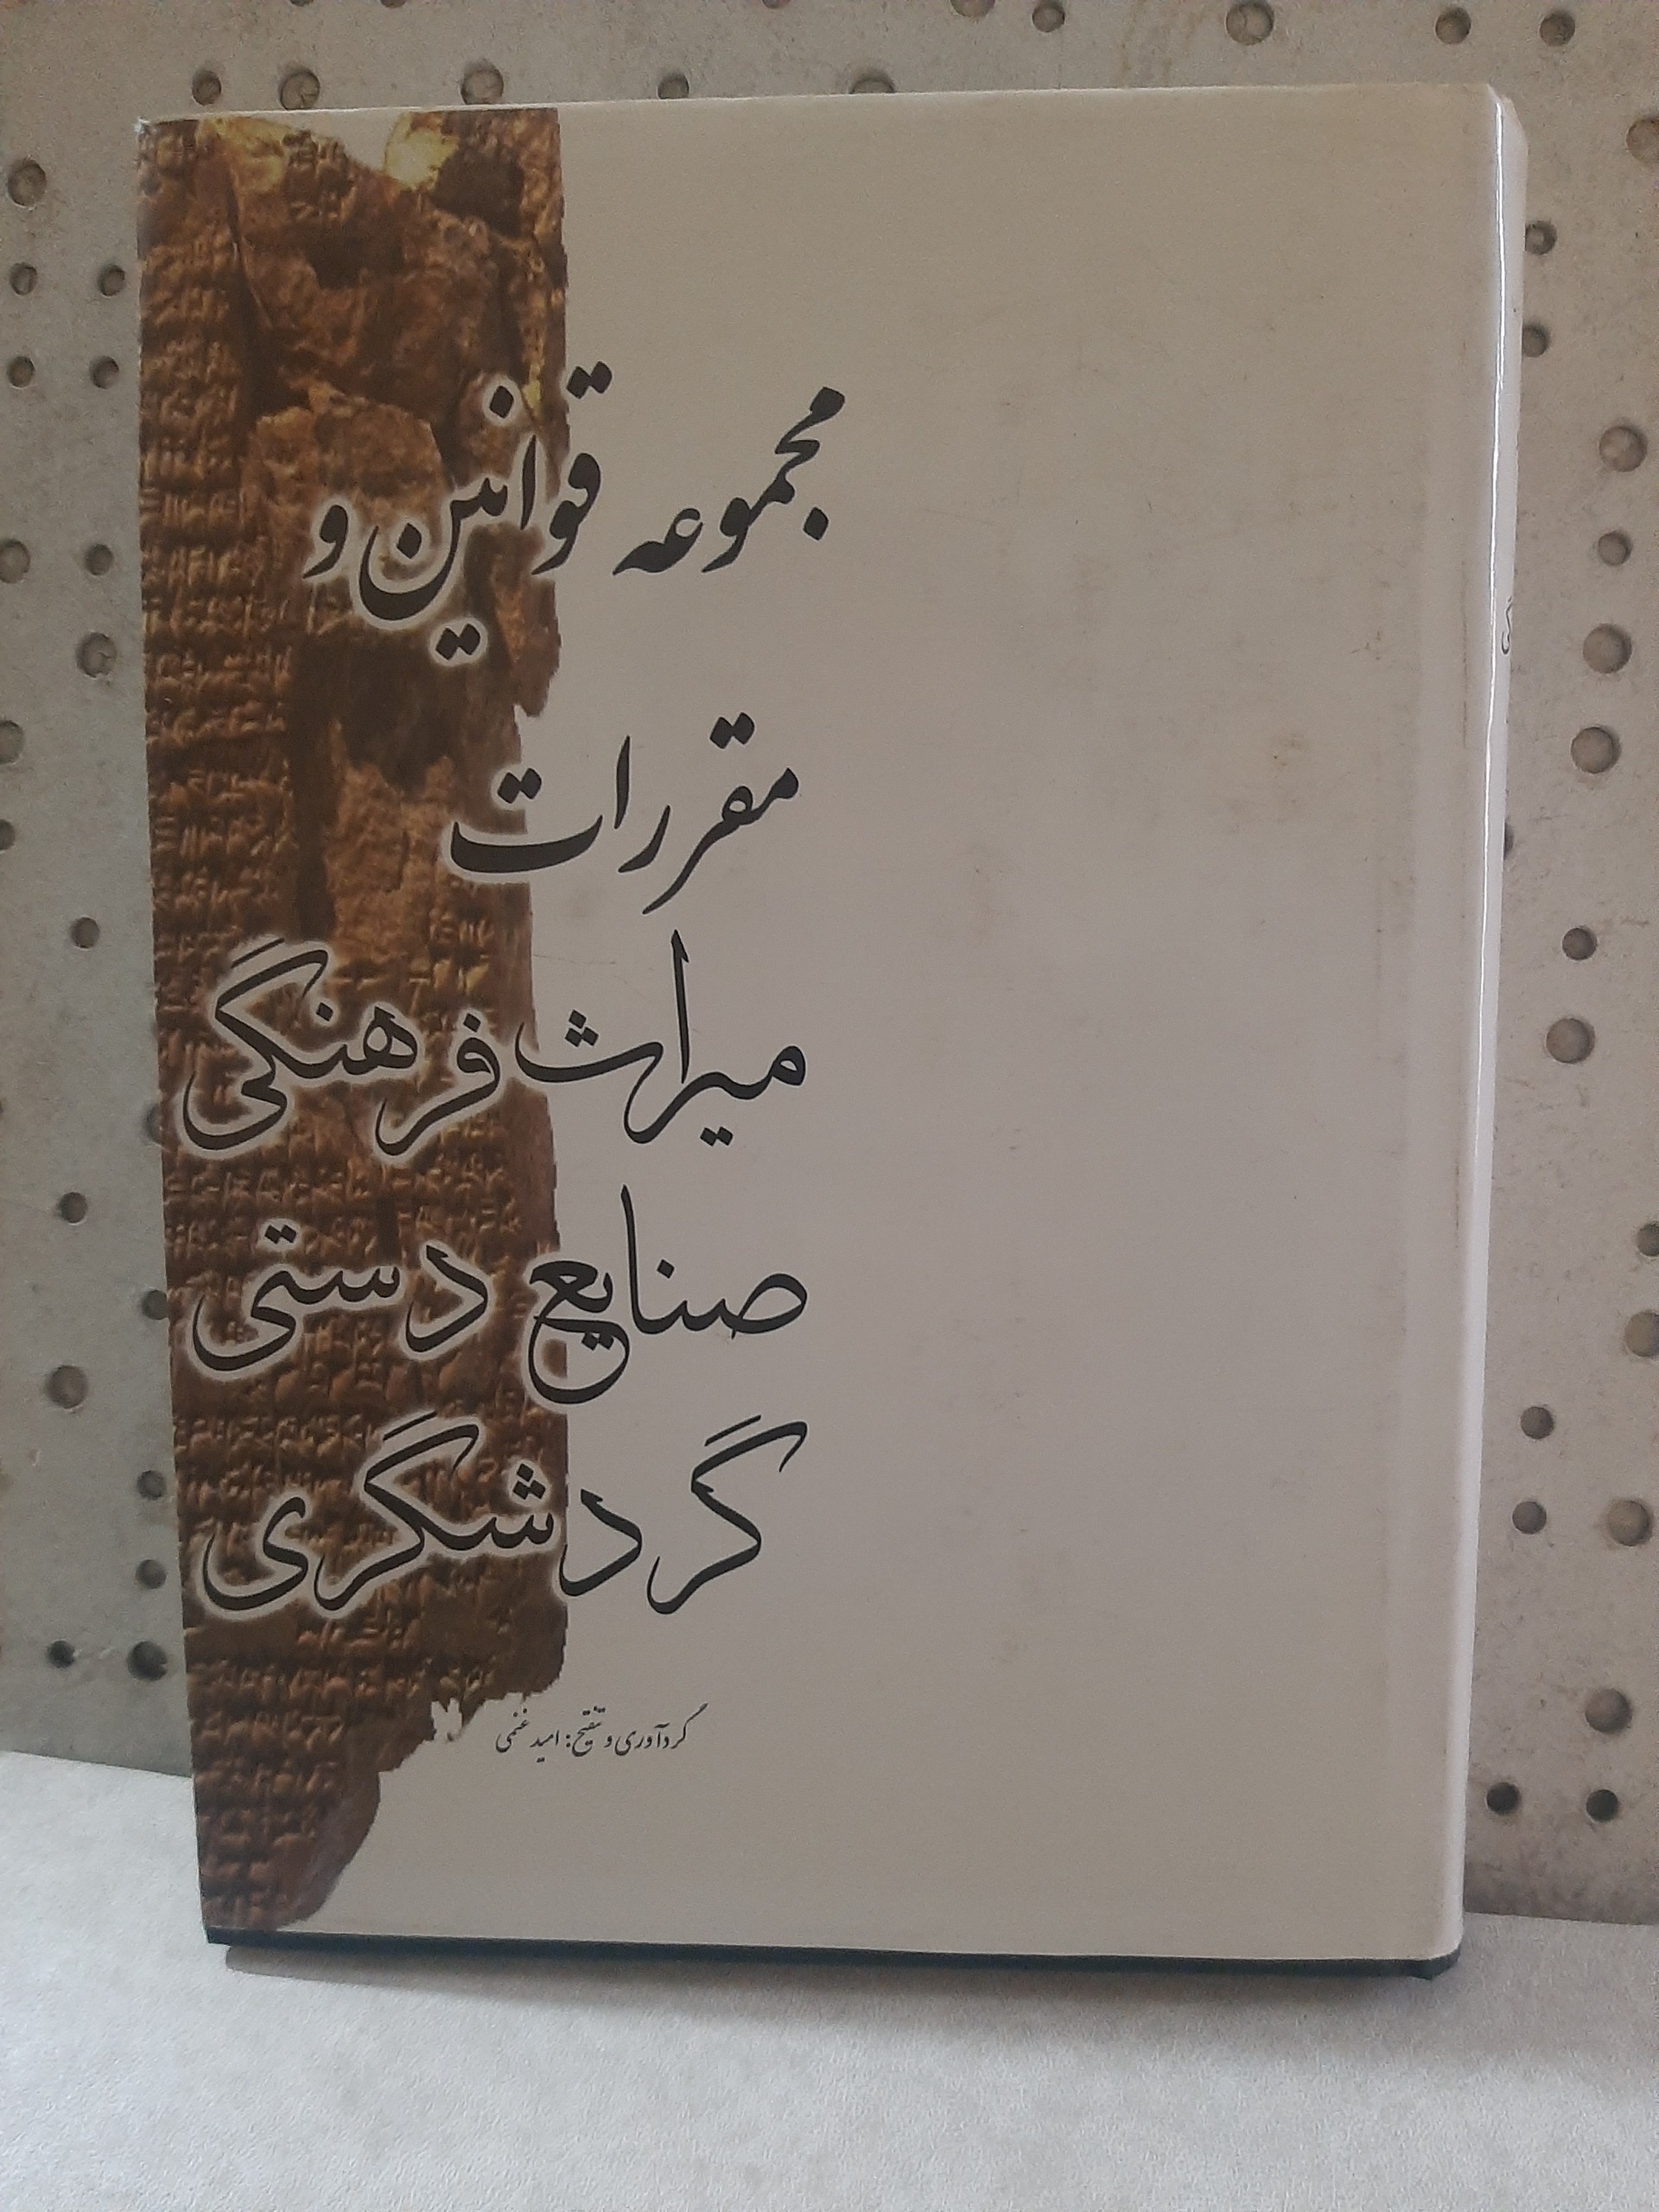 مجموعه قوانین و
مقررات
میراث فرهنگی
صنایع دستی
گردشگری
گردآوری و تنقیح: امید غنمی